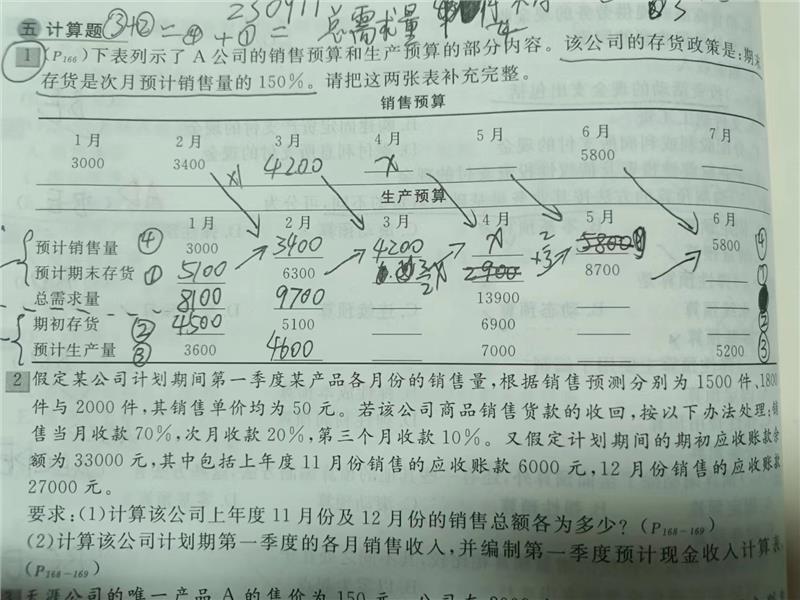 ③+② = ④ + ① = 总需求量
五 计算题
1 (P166)下表列示了 A 公司的销售预算和生产预算的部分内容。该公司的存货政策是:期末
存货是次月预计销售量的 150%。请把这两张表补充完整。
销售预算
1月 2月 3月 4月 5月 6月 7月
3000 3400 4200 x 5800
生产预算
1月 2月 3月 4月 5月 6月
预计销售量 ④ 3000 3400 4200 x 5800 ④
预计期末存货 ① 5100 6300 3/2x 2900 8700 ①
总需求量 8100 9700 13900
期初存货 ② 4500 5100 6900 ②
预计生产量 ③ 3600 4600 7000 5200 ③
2 假定某公司计划期间第一季度某产品各月份的销售量,根据销售预测分别为 1500 件、1800
件与 2000 件,其销售单价均为 50 元。若该公司商品销售货款的收回,按以下办法处理:销
售当月收款 70%,次月收款 20%,第三个月收款 10%。又假定计划期间的期初应收账款余
额为 33000 元,其中包括上年度 11 月份销售的应收账款 6000 元,12 月份销售的应收账款
27000 元。
要求:(1)计算该公司上年度 11 月份及 12 月份的销售总额各为多少? (P168-169)
(2)计算该公司计划期第一季度的各月销售收入,并编制第一季度预计现金收入计算表。
(P168-169)
天涯公司的唯一产品 A 的售价为 150 元